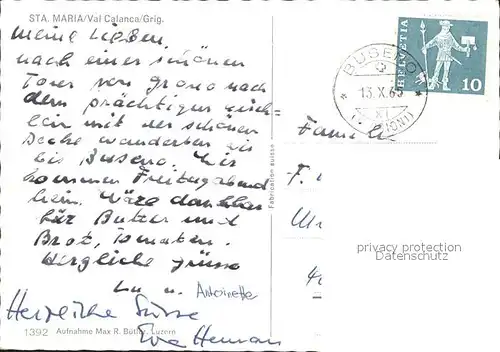 STA. MARIA/Val Calanca/Grig.
meine Lieben,
nach einer schönen
Tour von Grono nach
dem prächtigen Kirch
lein mit der schönen
Decke wanderten wir
bis Buseno. Wir
kommen Freitagabend
heim. Wäre dankbar
für Butter und
Brot, Tomaten.
Herzliche Grüsse
u. Antoinette
Herzliche Grüsse
Eva
1392 Aufnahme Max R. Bütler, Luzern
Fabrication suisse
BUSENO
13.X.65
HELVETIA
10
Familie
privacy protection
Datenschutz